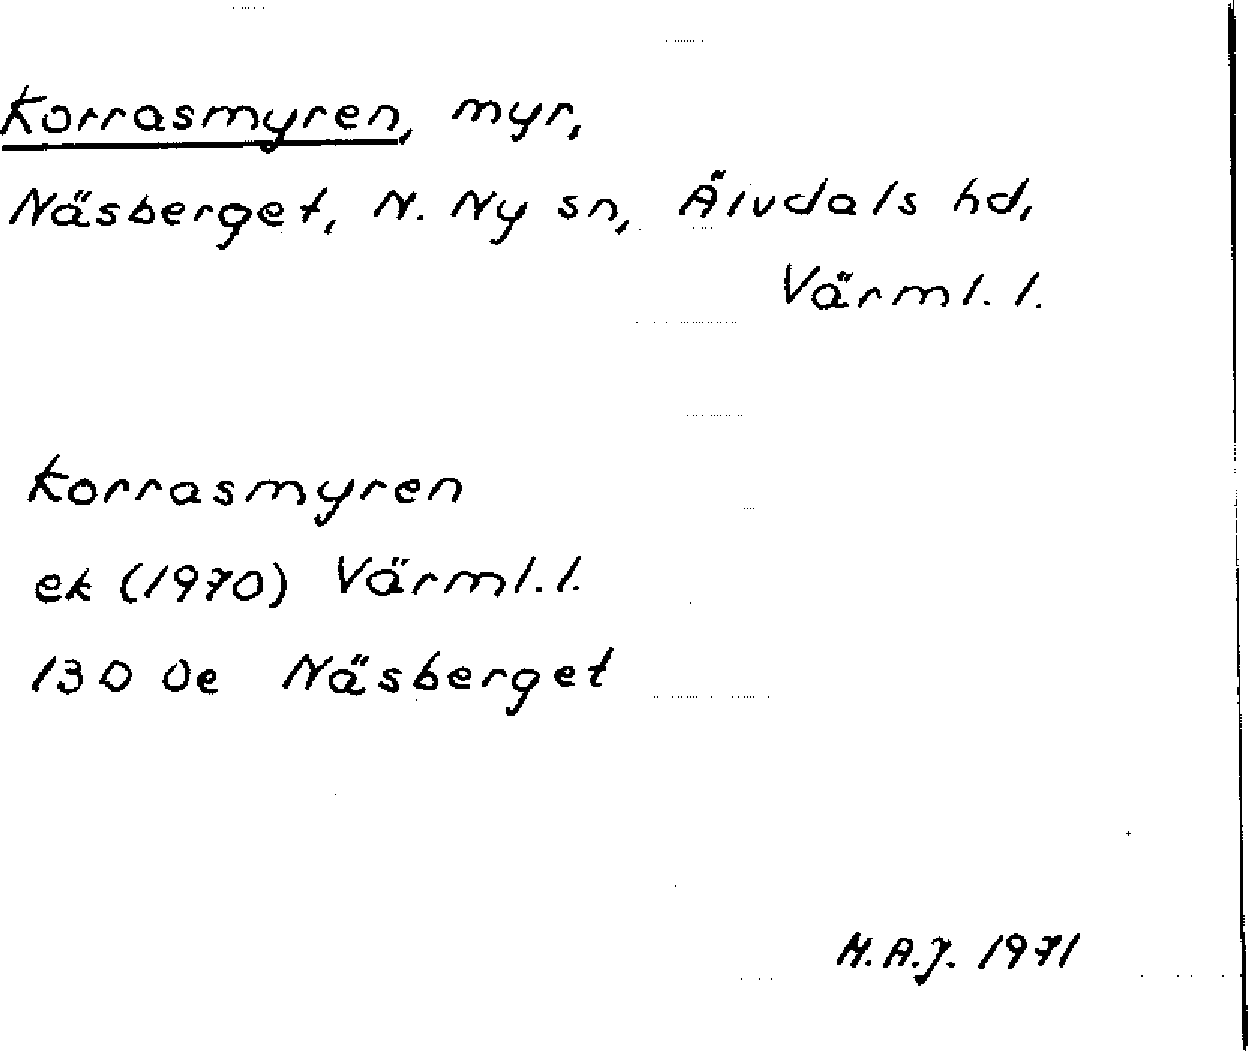 Korrasmyren, myr,
Näsberget, N. Ny sn, Älvdals hd,
Värml. l.
Korrasmyren
ek (1970) Värml. l.
130 De Näsberget
M.A.J. 1971